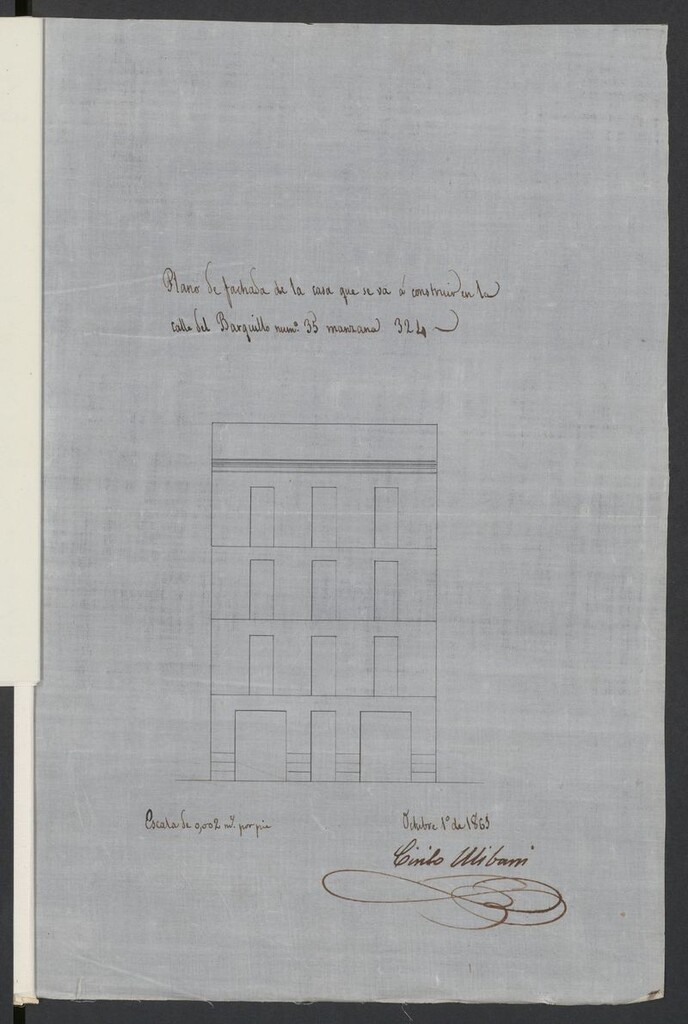 Plano de fachada de la casa que se va á construir en la
calle del Barquillo num.º 35 manzana 324
Escala de 0,002 m.s por pie
Octubre 1º de 1863
Cirilo Ulibarri